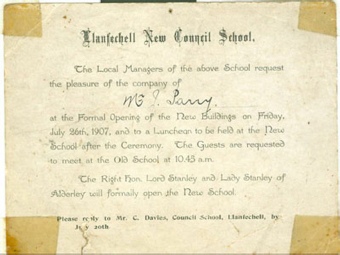 Llanfechell New Council School.
The Local Managers of the above School request
the pleasure of the company of
Mr J. Parry,
at the Formal Opening of the New Buildings on Friday,
July 26th, 1907, and to a Luncheon to be held at the New
School after the Ceremony. The Guests are requested
to meet at the Old School, at 10.45 a.m.
The Right Hon. Lord Stanley and Lady Stanley of
Alderley will formally open the New School.
Please reply to Mr. C. Davies, Council School, Llanfechell, by
July 20th